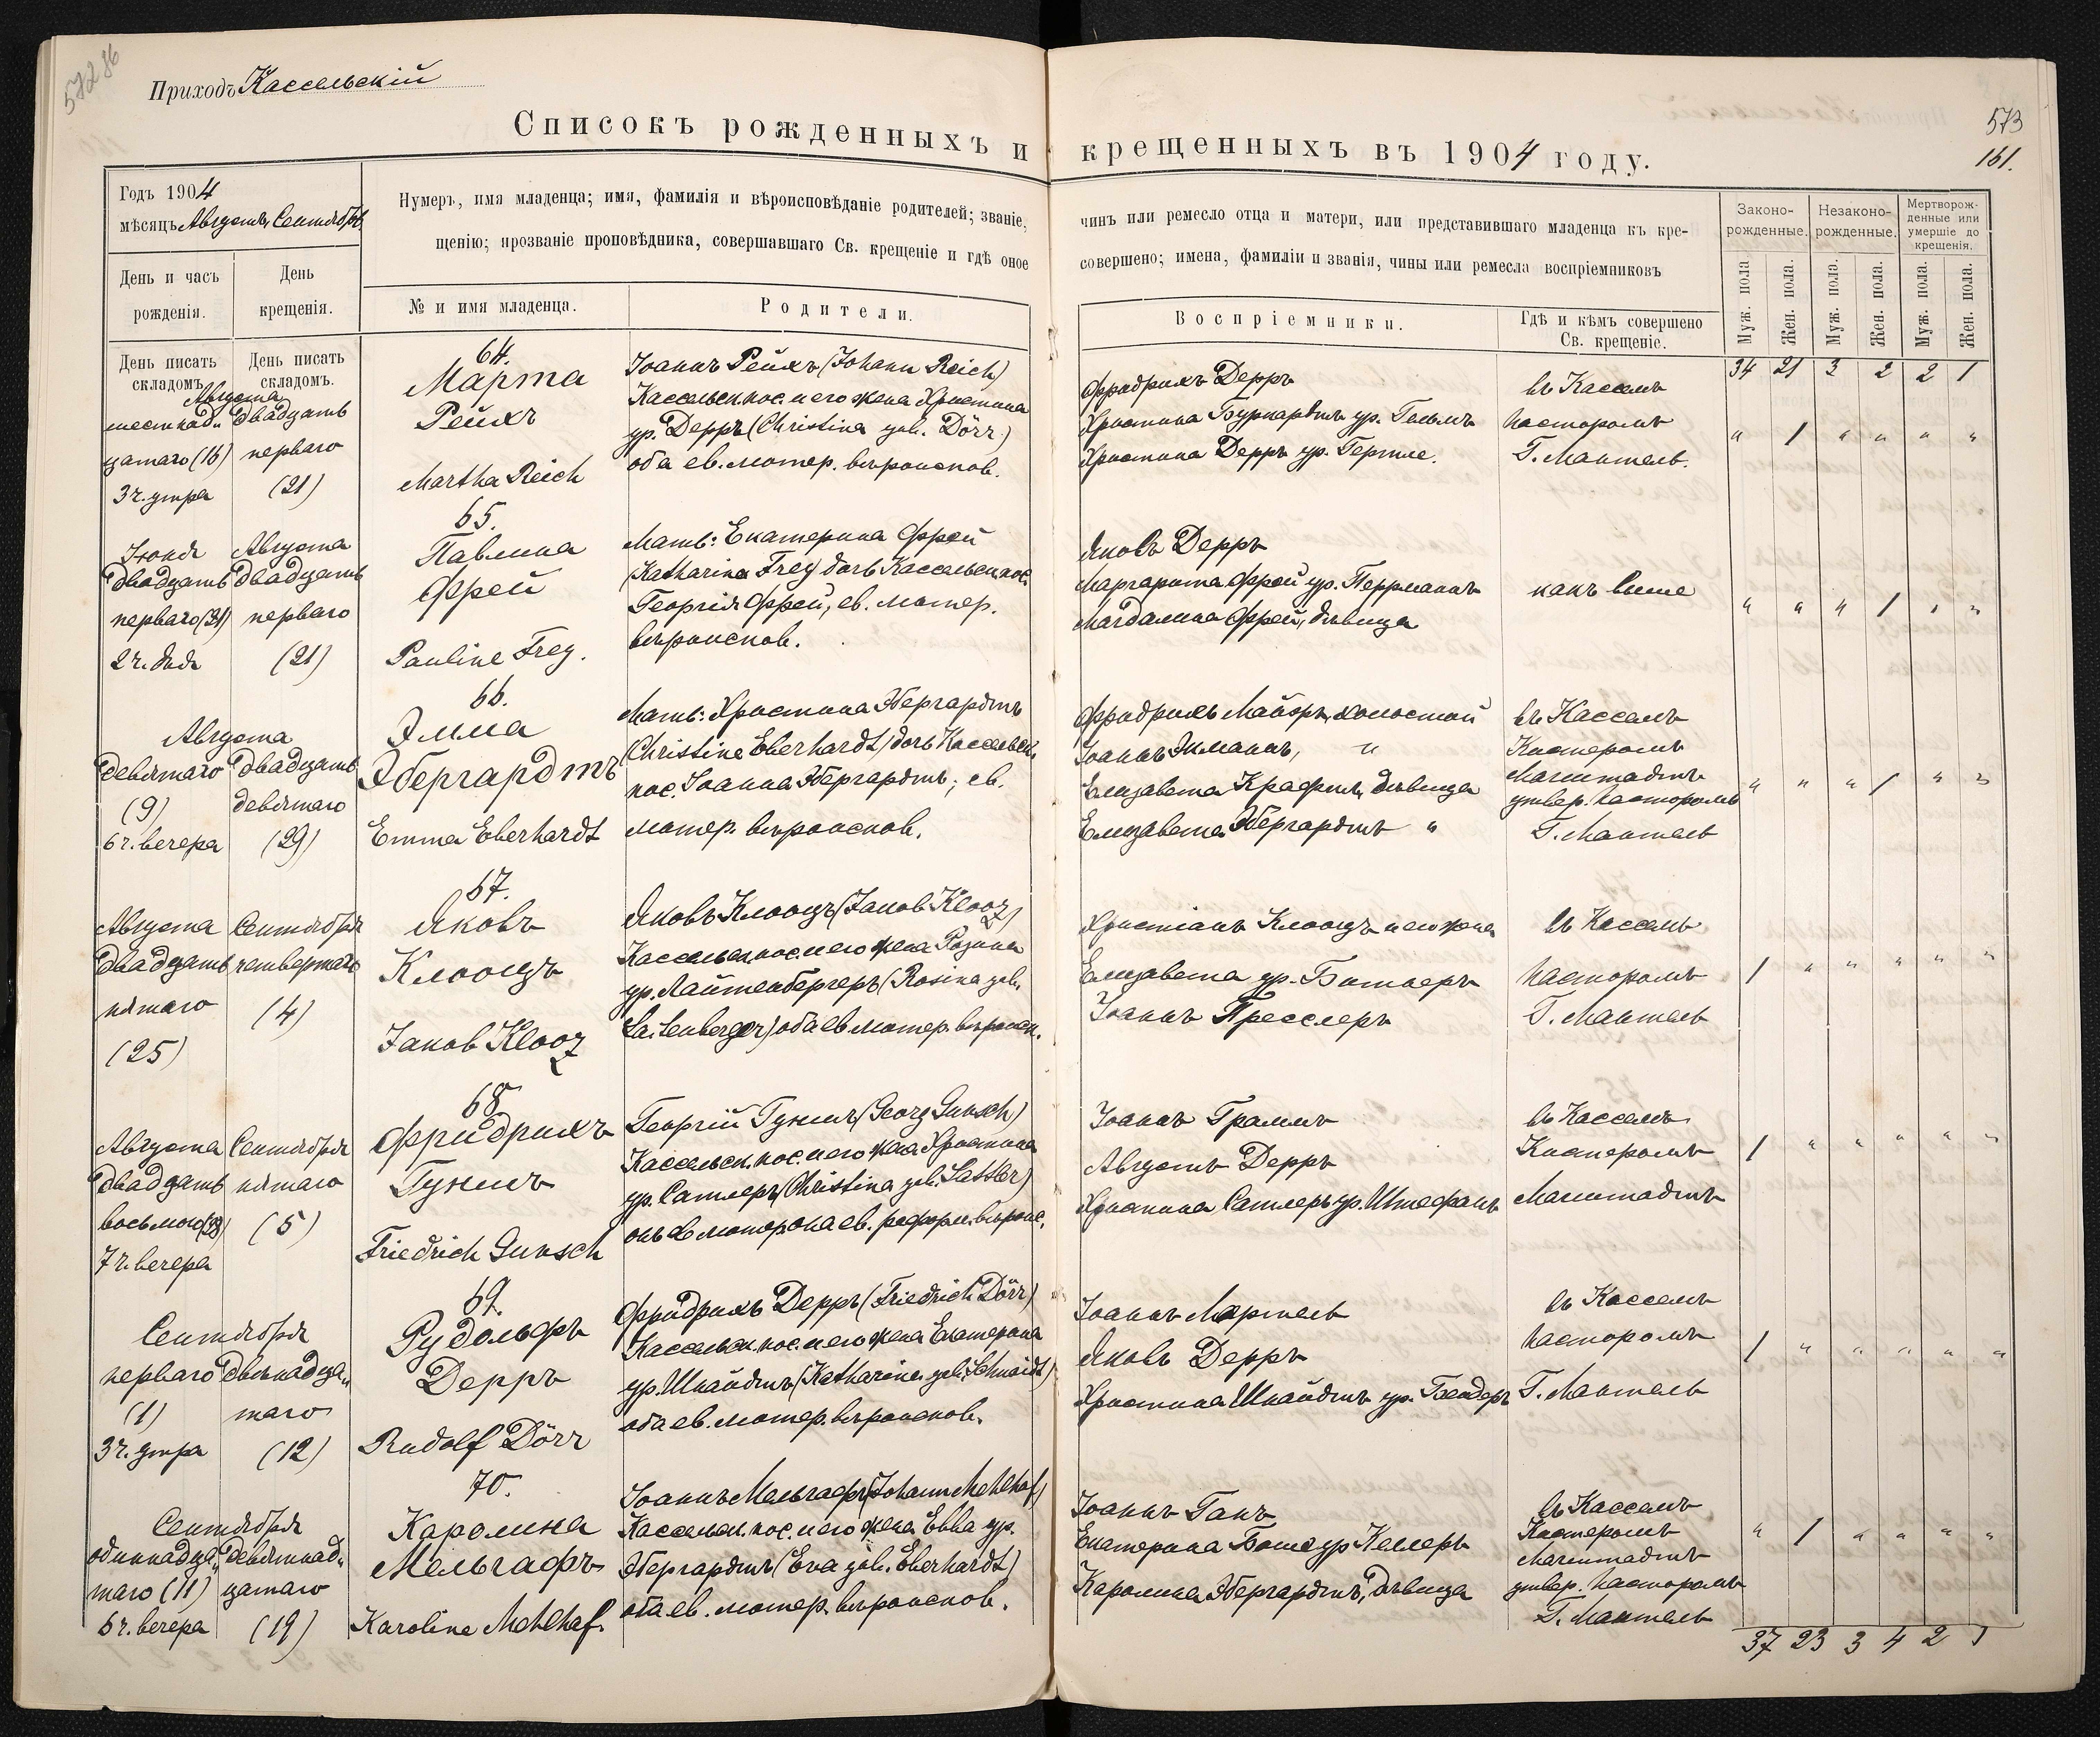 57286
Приходъ Кассельскій
573
161.
Списокъ рожденныхъ и крещенныхъ въ 1904 году.
Годъ 1904
мѣсяцъ Августъ, Сентябрь
День и часъ рожденія.
День крещенія.
Нумеръ, имя младенца; имя, фамилія и вѣроисповѣданіе родителей; званіе, чинъ или ремесло отца и матери, или представившаго младенца къ кре-
щенію; прозваніе проповѣдника, совершавшаго Св. крещеніе и гдѣ оное совершено; имена, фамиліи и званія, чины или ремесла воспріемниковъ
№ и имя младенца.
Родители.
Воспріемники.
Гдѣ и кѣмъ совершено
Св. крещеніе.
Законо-
рожденные.
Незаконо-
рожденные.
Мертворож-
денные или
умершіе до
крещенія.
Муж. пола
Жен. пола.
Муж. пола.
Жен. пола.
Муж. пола.
Жен. пола.
День писать
складомъ.
День писать
складомъ.
34 21 3 2 2 1
Августа
шестнад„
цатаго (16)
3 ч. утра
двадцать
перваго
(21)
64.
Марта
Рейхъ
Martha Reich
Іоаннъ Рейхъ (Johann Reich)
Кассельск. пос. и его жена Христина
ур. Дерръ (Christina geb. Dörr)
оба ев. лютер. вѣроиспов.
Фридрихъ Дерръ
Христина Бурнардтъ ур.
Христина Дерръ ур. Гертле.
въ Касселѣ
пасторомъ
Г. Мантель.
" 1 " " " "
Іюня
двадцать
перваго (21)
2 ч. дня
Августа
двадцать
перваго
(21)
65.
Павлина
Фрей
Pauline Frey.
Мать: Екатерина Фрей
(Katharina Frey) дочь Кассельск. пос.
Георгія Фрей, ев. лютер.
вѣроиспов.
Яковъ Дерръ
Маргарита Фрей ур. Перрманнъ
Магдалина Фрей, дѣвица
какъ выше
" " " 1 " "
Августа
девятаго
(9)
6 ч. вечера
двадцать
девятаго
(29)
66.
Эмма
Эбергардтъ
Emma Eberhardt
Мать: Христина Эбергардтъ
(Christine Eberhardt) дочь Кассельск.
пос. Іоанна Эбергардтъ; ев.
лютер. вѣроиспов.
Фридрихъ Майеръ, холостой
Іоаннъ Экманнъ, "
Елизавета Крафтъ, дѣвица
Елизавета Эбергардтъ "
въ Касселѣ
Кистеромъ
Магштадтъ
утвер. пасторомъ
Г. Мантель
" " " 1 " "
Августа
двадцать
пятаго
(25)
Сентября
четвертаго
(4)
67.
Яковъ
Клооцъ
Jakob Klooz
Яковъ Клооцъ (Jakob Klooz)
Кассельск. пос. и его жена Розина
ур. Лайтенбергеръ (Rosina geb.
Laitenberger) оба ев. лютер. вѣроисп.
Христіанъ Клооцъ и его жена
Елизавета ур. Битнеръ
Іоаннъ Пресслеръ
въ Касселѣ
пасторомъ
Г. Мантель
1 " " " " "
Августа
двадцать
восьмого (28)
7 ч. вечера
Сентября
пятаго
(5)
68
Фридрихъ
Гуншъ
Friedrich Gunsch
Георгій Гуншъ (Georg Gunsch)
Кассельск. пос. и его жена Христина
ур. Сатлеръ (Christina geb. Sattler)
онъ ев. лютер. она ев. реформ. вѣроис.
Іоаннъ Граммъ
Августъ Дерръ
Христина Сатлеръ ур. Штефанъ
въ Касселѣ
Кистеромъ
Магштадтъ
1 " " " " "
Сентября
перваго
(1)
3 ч. утра
двѣнадца„
таго
(12)
69.
Рудольфъ
Дерръ
Rudolf Dörr
Фридрихъ Дерръ (Friedrich Dörr)
Кассельск. пос. и его жена Екатерина
ур. Шнайдтъ (Katharina geb. Schnaidt)
оба ев. лютер. вѣроиспов.
Іоаннъ Мартель
Яковъ Дерръ
Христина Шнайдтъ ур. Бендеръ
въ Касселѣ
пасторомъ
Г. Мантель
1 " " " " "
Сентября
одиннадца„
таго (11)
6 ч. вечера
девятнад„
цатаго
(19)
70.
Каролина
Мельгафъ
Karoline Mehlhaf.
Іоаннъ Мельгафъ (Johann Mehlhaf)
Кассельск. пос. и его жена Евва ур.
Эбергардтъ (Eva geb. Eberhardt)
оба ев. лютер. вѣроиспов.
Іоаннъ Ганъ
Екатерина ур. Келлеръ
Каролина Эбергардтъ, дѣвица
въ Касселѣ
Кистеромъ
Магштадтъ
утвер. пасторомъ
Г. Мантель
" 1 " " " "
37 23 3 4 2 1